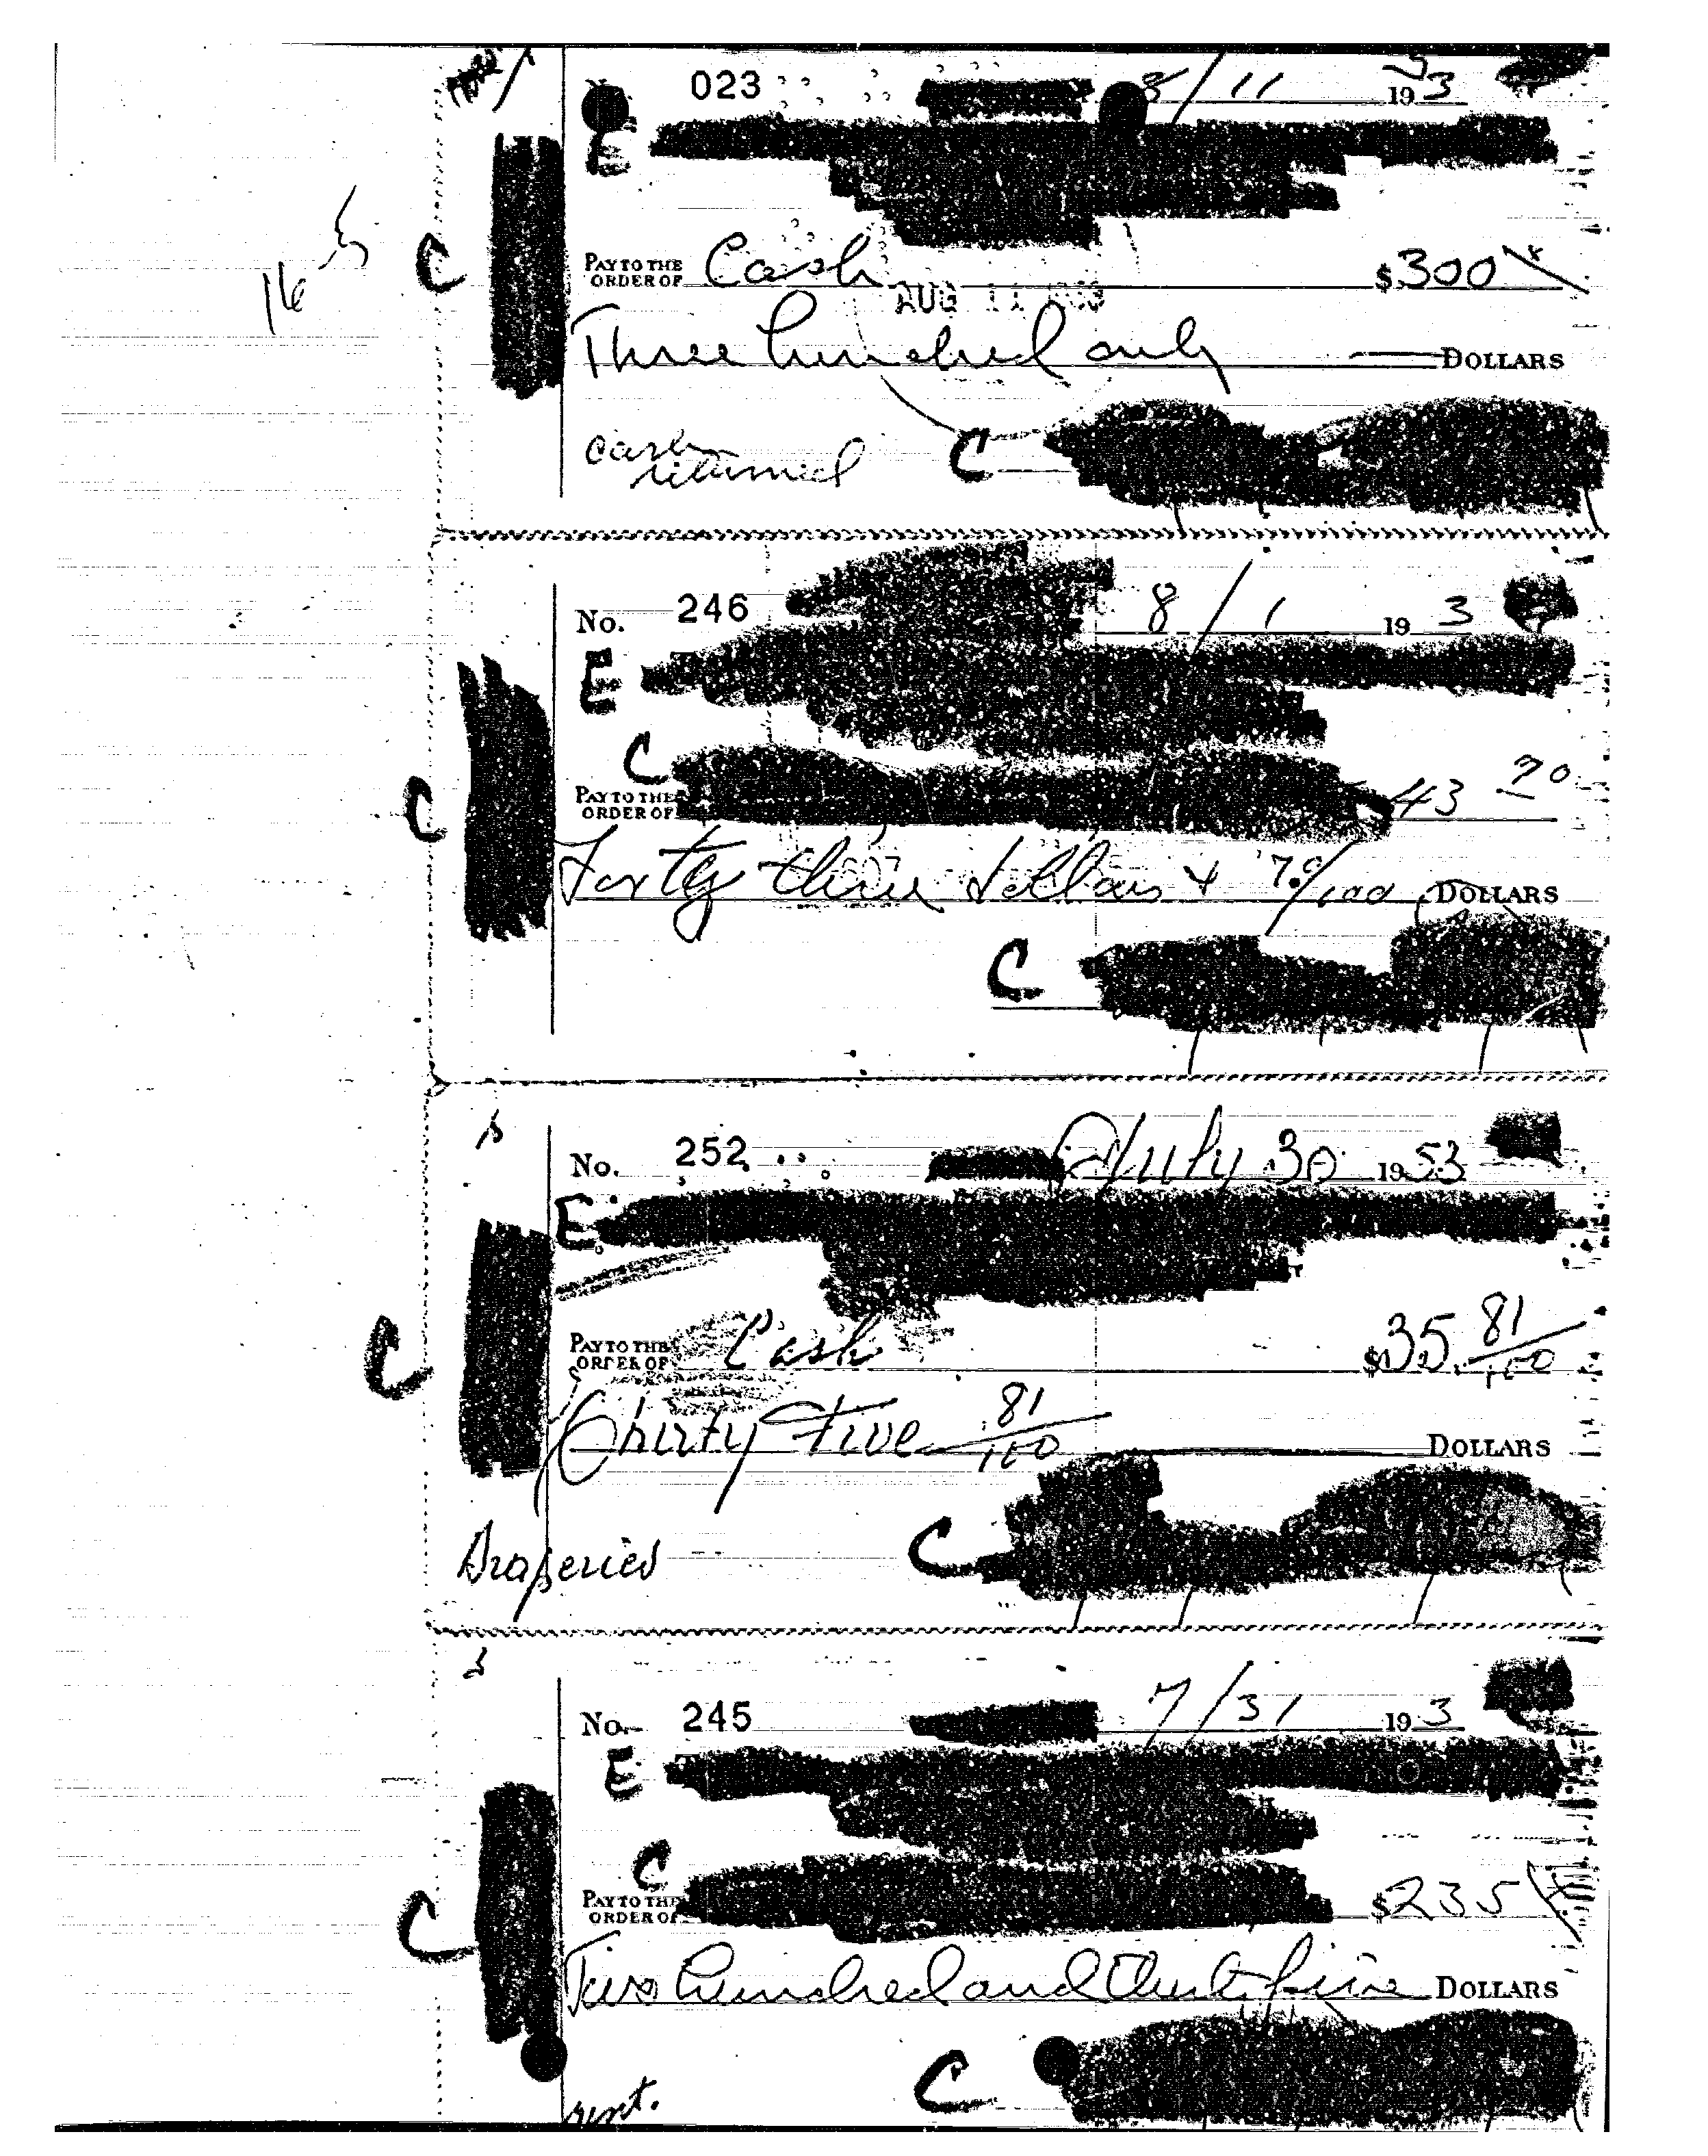 023 8/11 1953
E
16 5
C
PAY TO THE ORDER OF Cash $300
AUG 11
Three hundred only DOLLARS
cash returned C
No. 246 8/1 19 3
E
C
C PAY TO THE ORDER OF 43 70
Forty three dollars & 70/100 DOLLARS
C
No. 252 July 30 19 53
E
C PAY TO THE ORDER OF Cash $35. 81/100
Thirty Five 81/100 DOLLARS
Draperies C
No. 245 7/31 19 3
E
C
C PAY TO THE ORDER OF $235
Two hundred and thirty five DOLLARS
C
rent.